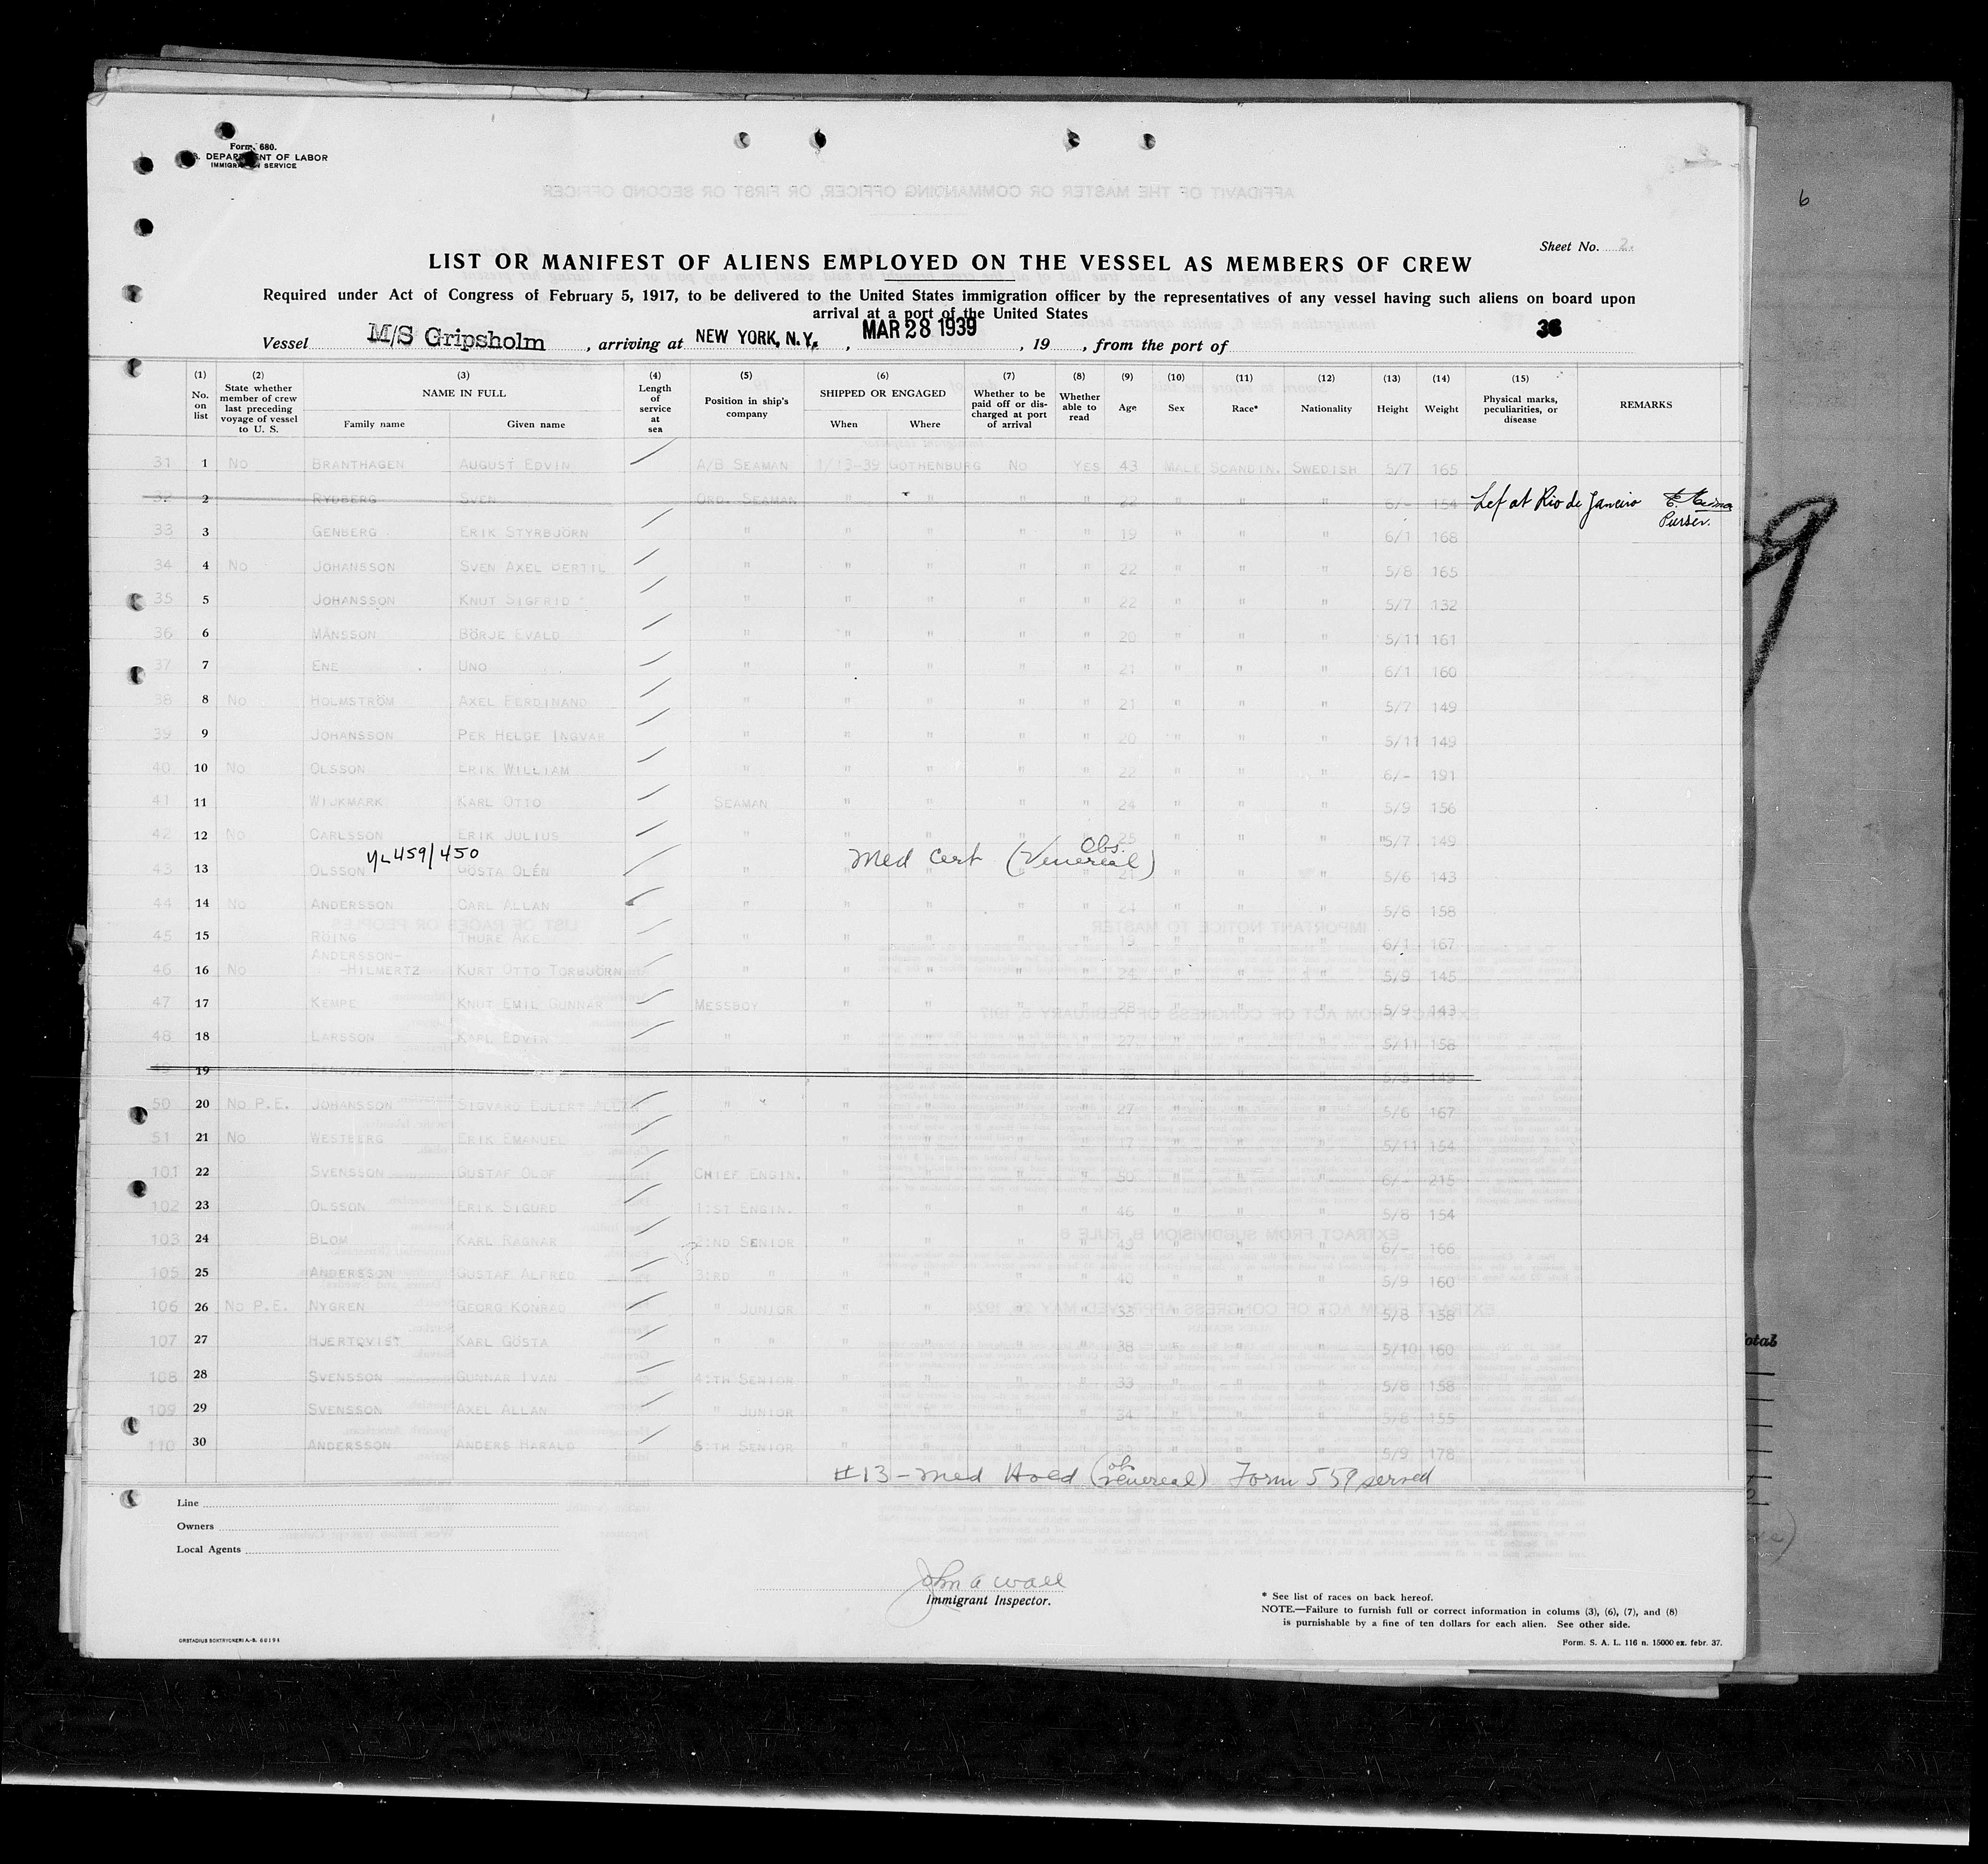 6
Form. 680.
DEPARTMENT OF LABOR
IMMIGRATION SERVICE
Sheet No. 2.
LIST OR MANIFEST OF ALIENS EMPLOYED ON THE VESSEL AS MEMBERS OF CREW
Required under Act of Congress of February 5, 1917, to be delivered to the United States immigration officer by the representatives of any vessel having such aliens on board upon
arrival at a port of the United States
Vessel M/S Gripsholm , arriving at NEW YORK, N.Y. , MAR 28 1939 , 19 , from the port of
(1) No. on list (2) State whether member of crew last preceding voyage of vessel to U. S. (3) NAME IN FULL Family name Given name (4) Length of service at sea (5) Position in ship's company (6) SHIPPED OR ENGAGED When Where (7) Whether to be paid off or discharged at port of arrival (8) Whether able to read (9) Age (10) Sex (11) Race* (12) Nationality (13) Height (14) Weight (15) Physical marks, peculiarities, or disease REMARKS
31 1 No BRANTHAGEN AUGUST EDVIN A/B SEAMAN 1/13-39 GOTHENBURG No YES 43 MALE SCANDIN. SWEDISH 5/7 165
32 2 RYDBERG SVEN ORD. SEAMAN " " " " 22 " " " 6/- 154 Lef at Rio de Janeiro Purser.
33 3 GENBERG ERIK STYRBJÖRN " " " " " 19 " " " 6/1 168
34 4 No JOHANSSON SVEN AXEL BERTIL " " " " " 22 " " " 5/8 165
35 5 JOHANSSON KNUT SIGFRID " " " " " 22 " " " 5/7 132
36 6 MÅNSSON BÖRJE EVALD " " " " " 20 " " " 5/11 161
37 7 ENE UNO " " " " " 21 " " " 6/1 160
38 8 No HOLMSTRÖM AXEL FERDINAND " " " " " 21 " " " 5/7 149
39 9 JOHANSSON PER HELGE INGVAR " " " " " 20 " " " 5/11 149
40 10 No OLSSON ERIK WILLIAM " " " " " 22 " " " 6/- 191
41 11 WIJKMARK KARL OTTO SEAMAN " " " " 24 " " " 5/9 156
42 12 No CARLSSON ERIK JULIUS " " " " " 25 " " " 5/7 149
43 13 OLSSON 459/450 GÖSTA OLÉN " Med Cert (Obs. Venereal) 21 " " " 5/6 143
44 14 No ANDERSSON CARL ALLAN " " " " " 24 " " " 5/8 158
45 15 RÖING THURE ÅKE " " " " " 19 " " " 6/1 167
46 16 No ANDERSSON-HILMERTZ KURT OTTO TORBJÖRN " " " " " 24 " " " 5/9 145
47 17 KEMPE KNUT EMIL GUNNAR MESSBOY " " " " 28 " " " 5/9 143
48 18 LARSSON KARL EDVIN " " " " " 27 " " " 5/11 158
49 19
50 20 No P.E. JOHANSSON SIGVARD EGLERT ALLAN " " " " " 27 " " " 5/6 167
51 21 No WESTBERG ERIK EMANUEL " " " " " 17 " " " 5/11 154
101 22 SVENSSON GUSTAF OLOF CHIEF ENGIN. " " " " 50 " " " 6/- 215
102 23 OLSSON ERIK SIGURD 1:ST ENGIN. " " " " 46 " " " 5/8 154
103 24 BLOM KARL RAGNAR 2:ND SENIOR " " " " 43 " " " 6/- 166
105 25 ANDERSSON GUSTAF ALFRED 3:RD " " " " " 40 " " " 5/9 160
106 26 No P.E. NYGREN GEORG KONRAD " JUNIOR " " " " 33 " " " 5/8 158
107 27 HJERTQVIST KARL GÖSTA " " " " " " 38 " " " 5/10 160
108 28 SVENSSON GUNNAR IVAN 4:TH SENIOR " " " " 33 " " " 5/8 158
109 29 SVENSSON AXEL ALLAN " JUNIOR " " " " 34 " " " 5/8 155
110 30 ANDERSSON ANDERS HARALD 5:TH SENIOR " " " " " " " 5/9 178
#13 - Med Hold (obs venereal) Form 559 served
Line
Owners
Local Agents
John A Wall
Immigrant Inspector.
* See list of races on back hereof.
NOTE.—Failure to furnish full or correct information in colums (3), (6), (7), and (8)
is punishable by a fine of ten dollars for each alien. See other side.
ORSTADIUS BOKTRYCKERI A.-B. 60194
Form. S. A. L. 116 n. 15000 ex. febr. 37.